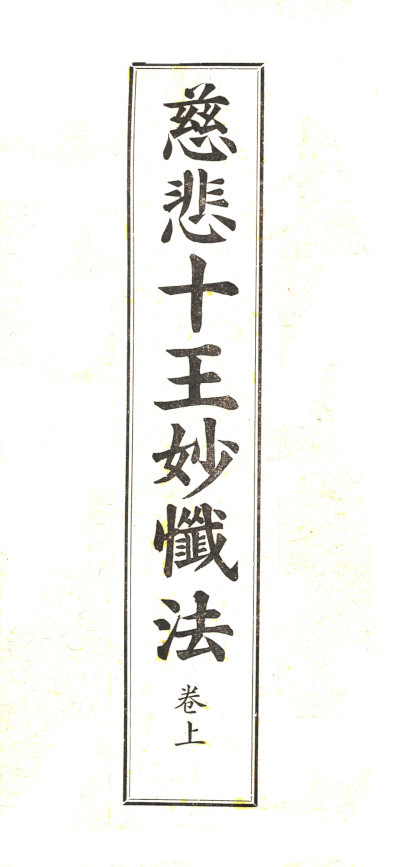 慈悲十王妙懺法
卷上